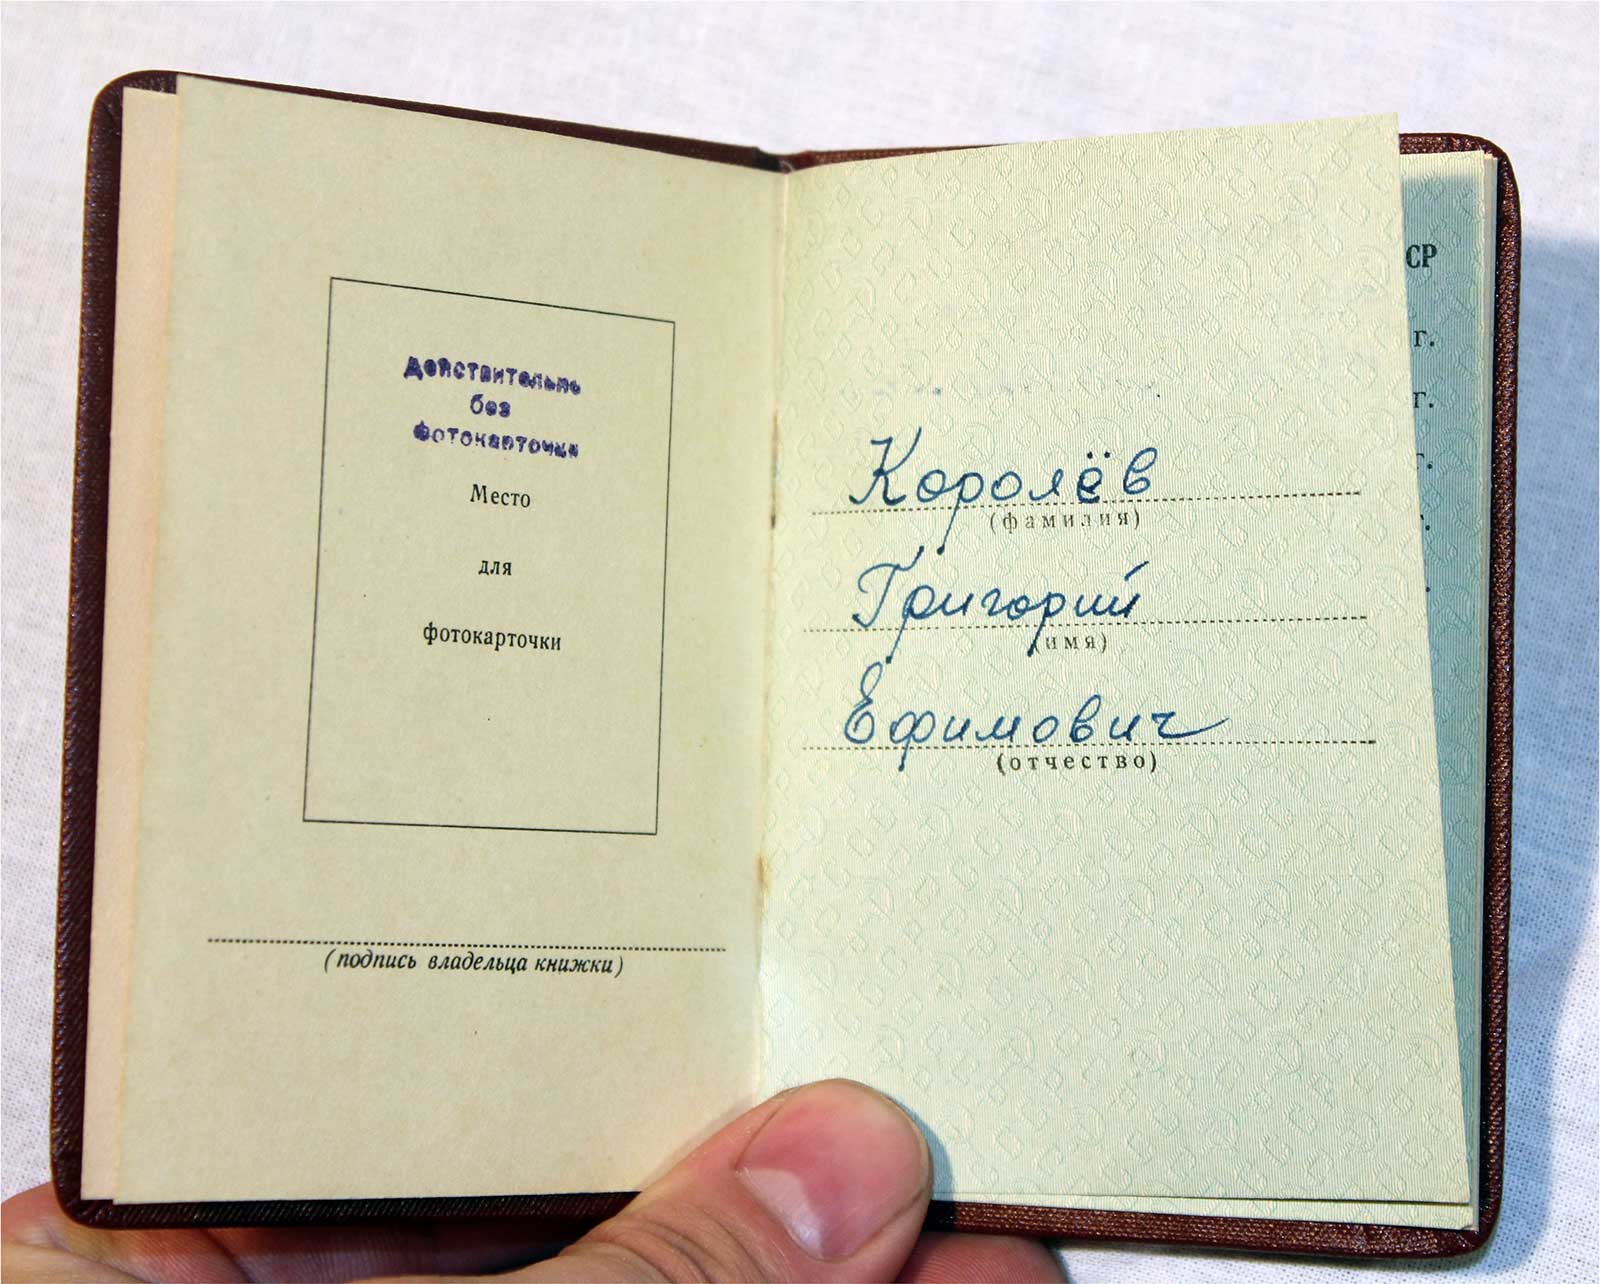 Действительно
без
фотокарточки
Место
для
фотокарточки
(подпись владельца книжки)
Королёв
(фамилия)
Григорий
(имя)
Ефимович
(отчество)
СР
г.
г.
г.
г.